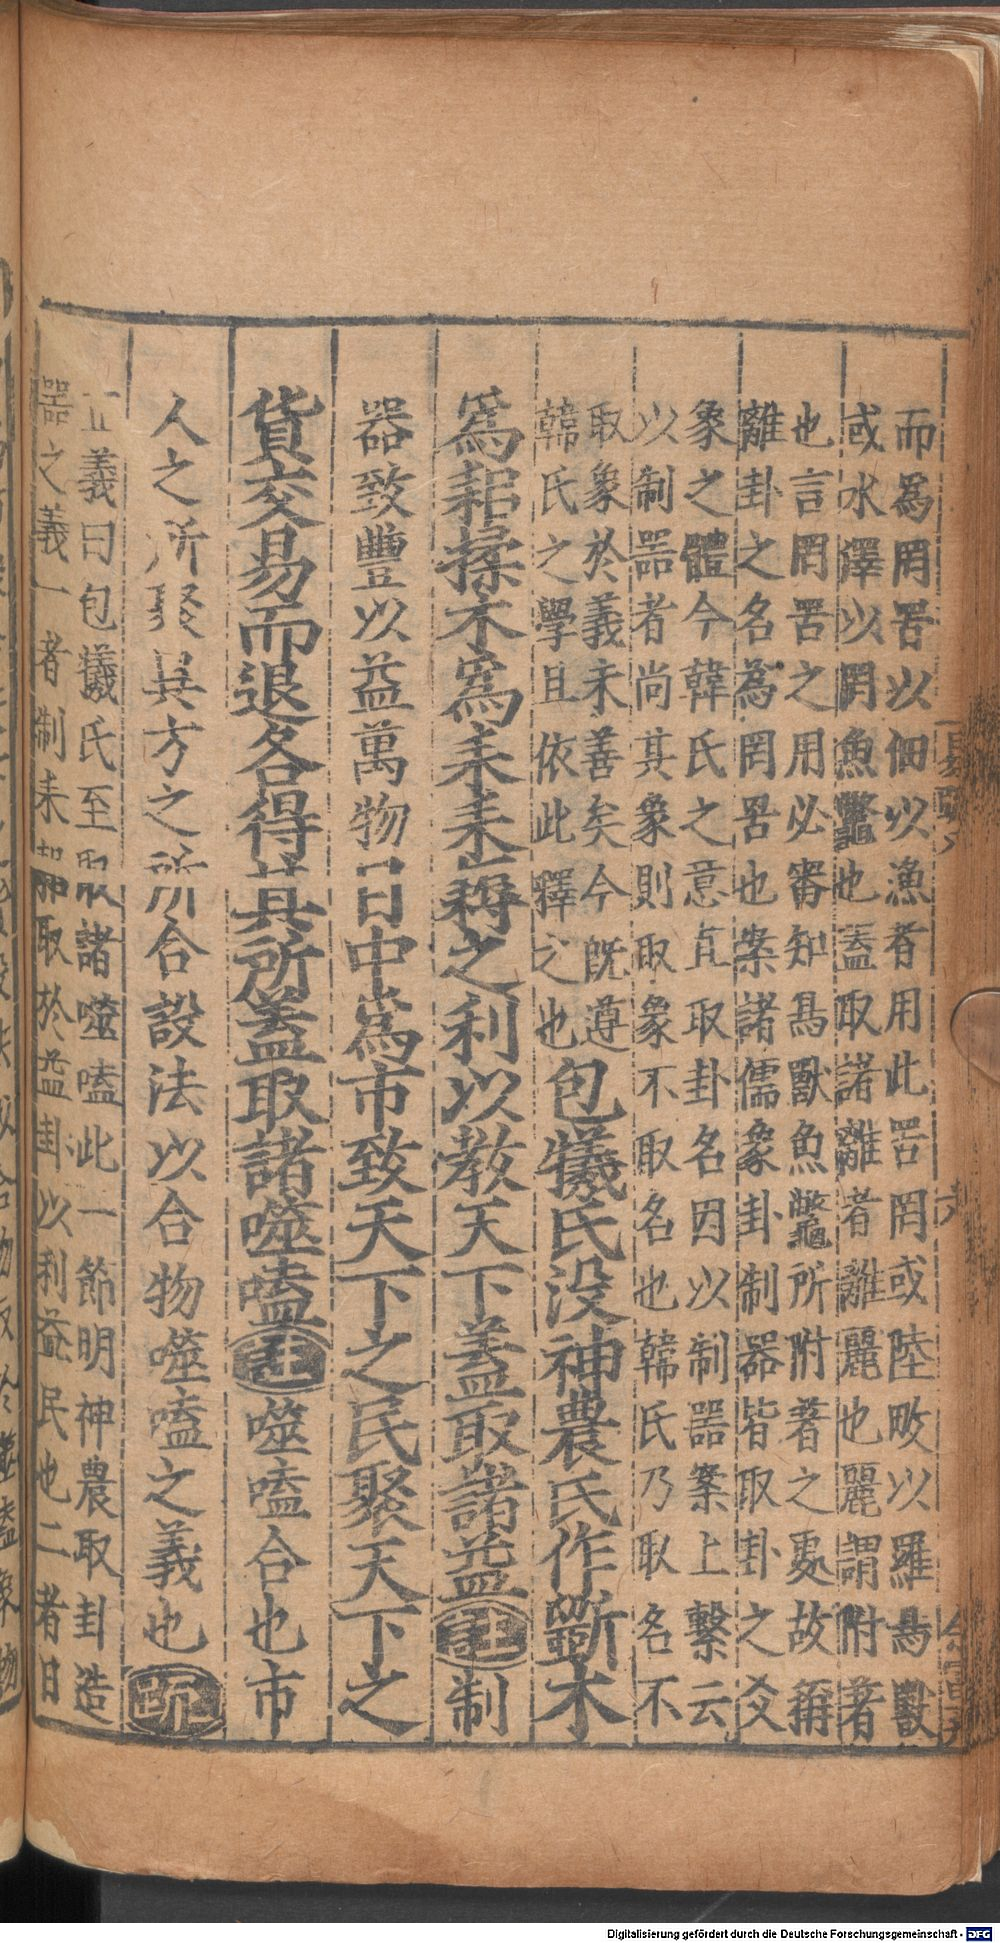 而為罔罟以佃以漁者用此罟罔或陸畋以羅鳥獸
或水澤以罔魚鼈也蓋取諸離者離麗也麗謂附著
也言罔罟之用必審知鳥獸魚鼈所附著之處故稱
離卦之名為罔罟也案諸儒象卦制器皆取卦之爻
象之體今韓氏之意直取卦名因以制噐案上繫云
以制噐者尚其象則取象不取名也韓氏乃取名不
取象於義未善矣今既遵
韓氏之學且依此釋之也
包犧氏没神農氏作斵木
為耜揉木為耒耒耨之利以教天下蓋取諸益 註 制
器致豐以益萬物日中為市致天下之民聚天下之
貨交易而退各得其所蓋取諸噬嗑 註 噬嗑合也市
人之所聚異方之所合設法以合物噬嗑之義也 疏
正義曰包犧氏至取諸噬嗑此一節明神農取卦造
噐之義一者制耒耜取於益卦以利益民也二者日
Digitalisierung gefördert durch die Deutsche Forschungsgemeinschaft - DFG